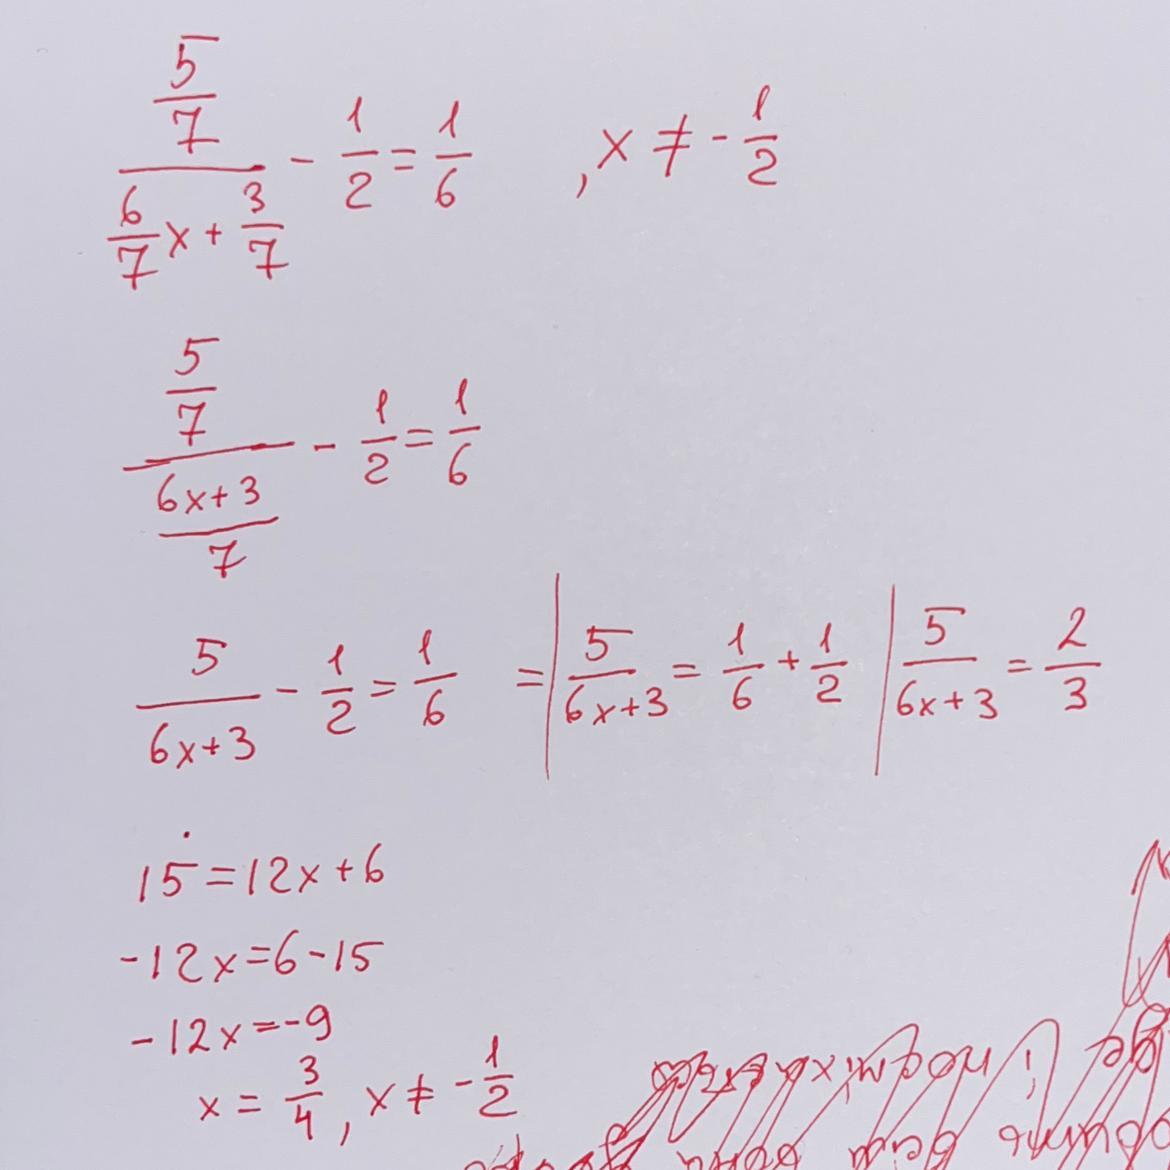 5/7 / (6/7 x + 3/7) - 1/2 = 1/6 , x ≠ - 1/2
5/7 / ((6x+3)/7) - 1/2 = 1/6
5/(6x+3) - 1/2 = 1/6 = | 5/(6x+3) = 1/6 + 1/2 | 5/(6x+3) = 2/3
15 = 12x + 6
-12x = 6 - 15
-12x = -9
x = 3/4 , x ≠ - 1/2